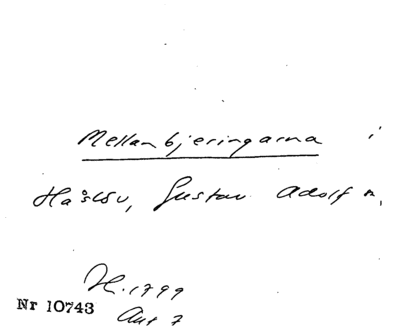 Mellanbjeringarna i
Haslöv, Gustav Adolf
H. 1799
Nr 10743
Akt 7